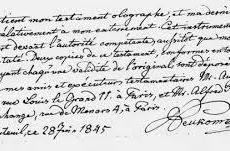 tient mon testament olographe, et ma derniè
relativement a mon enterrement. Cet
et devant l'autorité compétente, au
Deux copies de ce testament, conformes et
ayant chacune validité de l'original sont dépos
mes amis et exécuteurs testamentaires Mr. Au
rue Louis le Grand 11. à Paris, et Mr. Alfred
change, rue de Menars 4, à Paris.
teuil, ce 28 Juin 1845
Neukomm